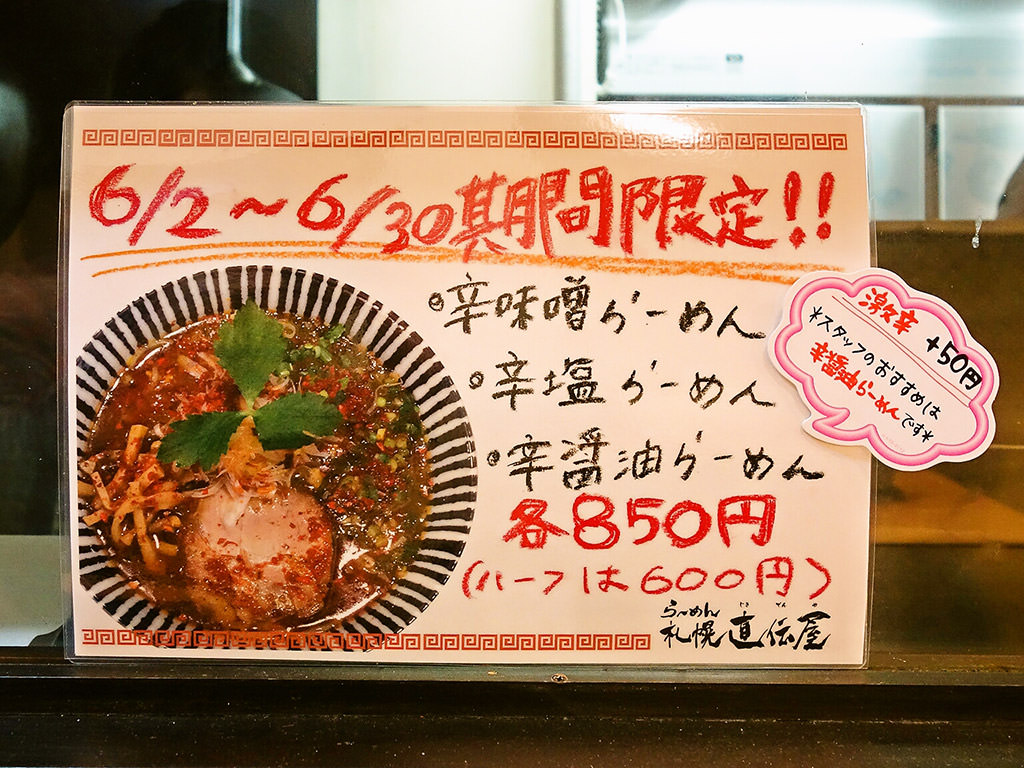 6/2～6/30期間限定!!
・辛味噌らーめん
・辛塩らーめん
・辛醤油らーめん
各850円
(ハーフは600円)
らーめん
じきでんや
札幌 直伝屋
激辛 +50円
*スタッフのおすすめは
辛醤油らーめんです*